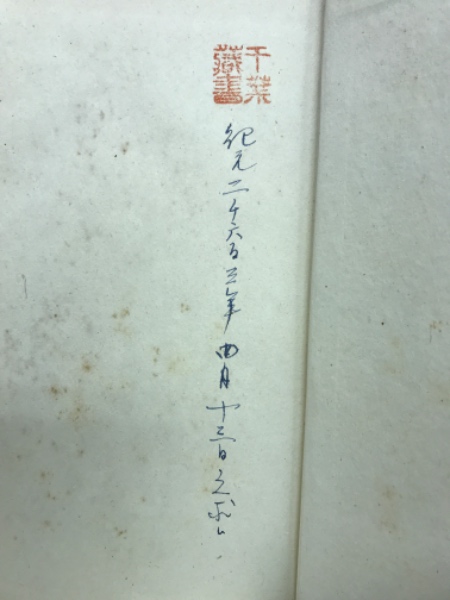 千葉
蔵書
紀元二千六百三年四月十三日之ヲ